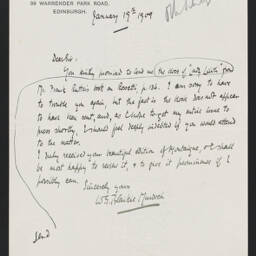 39 WARRENDER PARK ROAD,
EDINBURGH.
January 19th 1909
Dear Sir,
You kindly promised to send me the cliché of "Lady Lilith" from
Mr. Frank Rutter's book on Rossetti, p. 136. I am sorry to have
to trouble you again, but the fact is the cliché does not appear
to have been sent, and, as I hope to get my entire issue to
press shortly, I should feel deeply indebted if you would attend
to the matter.
I duly received your beautiful edition of Montaigne, & shall
be most happy to review it, & to give it prominence if I
possibly can.
Sincerely yours
W. G. Blaikie Murdoch
Send